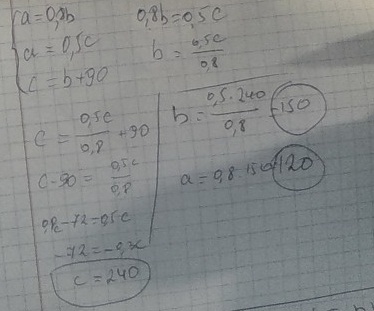 a=0,8b
a=0,5c
c=b+90
0,8b=0,5c
b = 0,5c/0,8
c = 0,5c/0,8 +90
c-90= 0,5c/0,8
0,8c-72=0,5c
-72=-0,3c
c=240
b= 0,5·240/0,8 =150
a=0,8·150=120